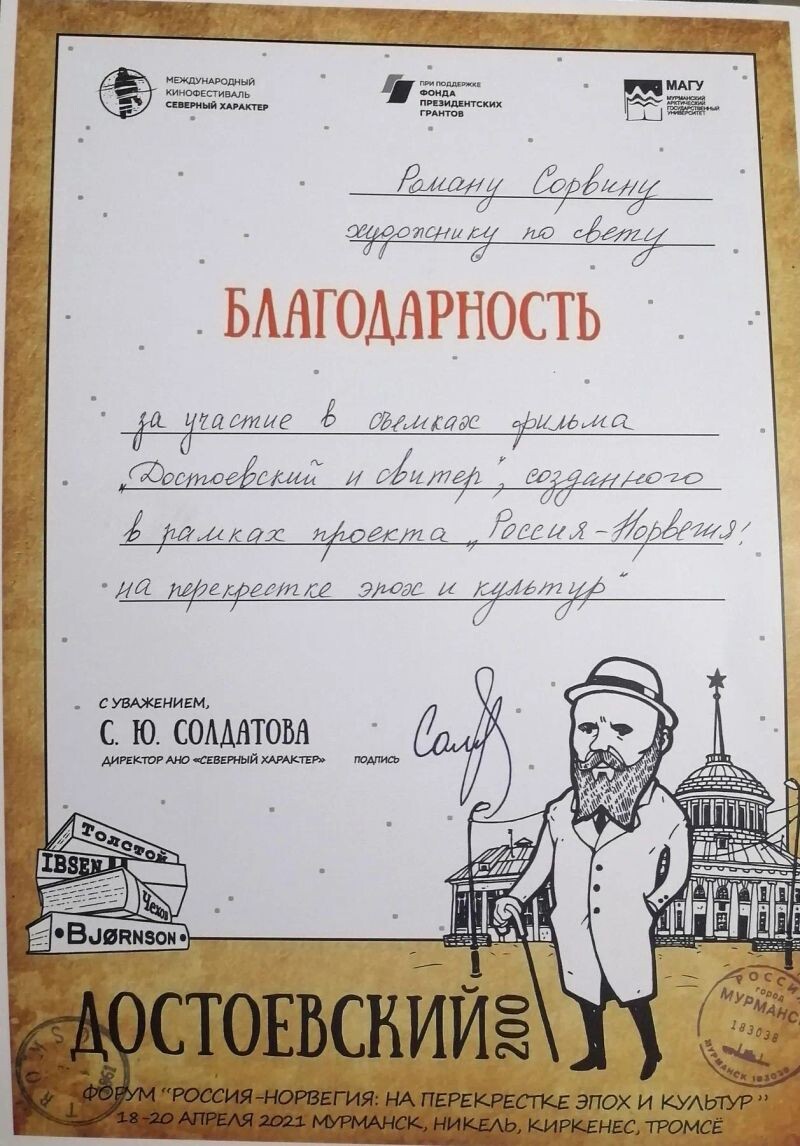 МЕЖДУНАРОДНЫЙ
КИНОФЕСТИВАЛЬ
СЕВЕРНЫЙ ХАРАКТЕР
ПРИ ПОДДЕРЖКЕ
ФОНДА
ПРЕЗИДЕНТСКИХ
ГРАНТОВ
МАГУ
МУРМАНСКИЙ
АРКТИЧЕСКИЙ
ГОСУДАРСТВЕННЫЙ
УНИВЕРСИТЕТ
Роману Сорвину
художнику по свету
БЛАГОДАРНОСТЬ
за участие в съемках фильма
„Достоевский и свитер", созданного
в рамках проекта „Россия-Норвегия:
на перекрестке эпох и культур"
С УВАЖЕНИЕМ,
С. Ю. СОЛДАТОВА
ДИРЕКТОР АНО «СЕВЕРНЫЙ ХАРАКТЕР»
ПОДПИСЬ
Толстой
IBSEN
Чехов
•BJØRNSON•
ДОСТОЕВСКИЙ 200
РОССИЯ
город
МУРМАНСК
183038
МУРМАНСК 183038
TROMS
ФОРУМ "РОССИЯ-НОРВЕГИЯ: НА ПЕРЕКРЕСТКЕ ЭПОХ И КУЛЬТУР"
18-20 АПРЕЛЯ 2021 МУРМАНСК, НИКЕЛЬ, КИРКЕНЕС, ТРОМСЁ